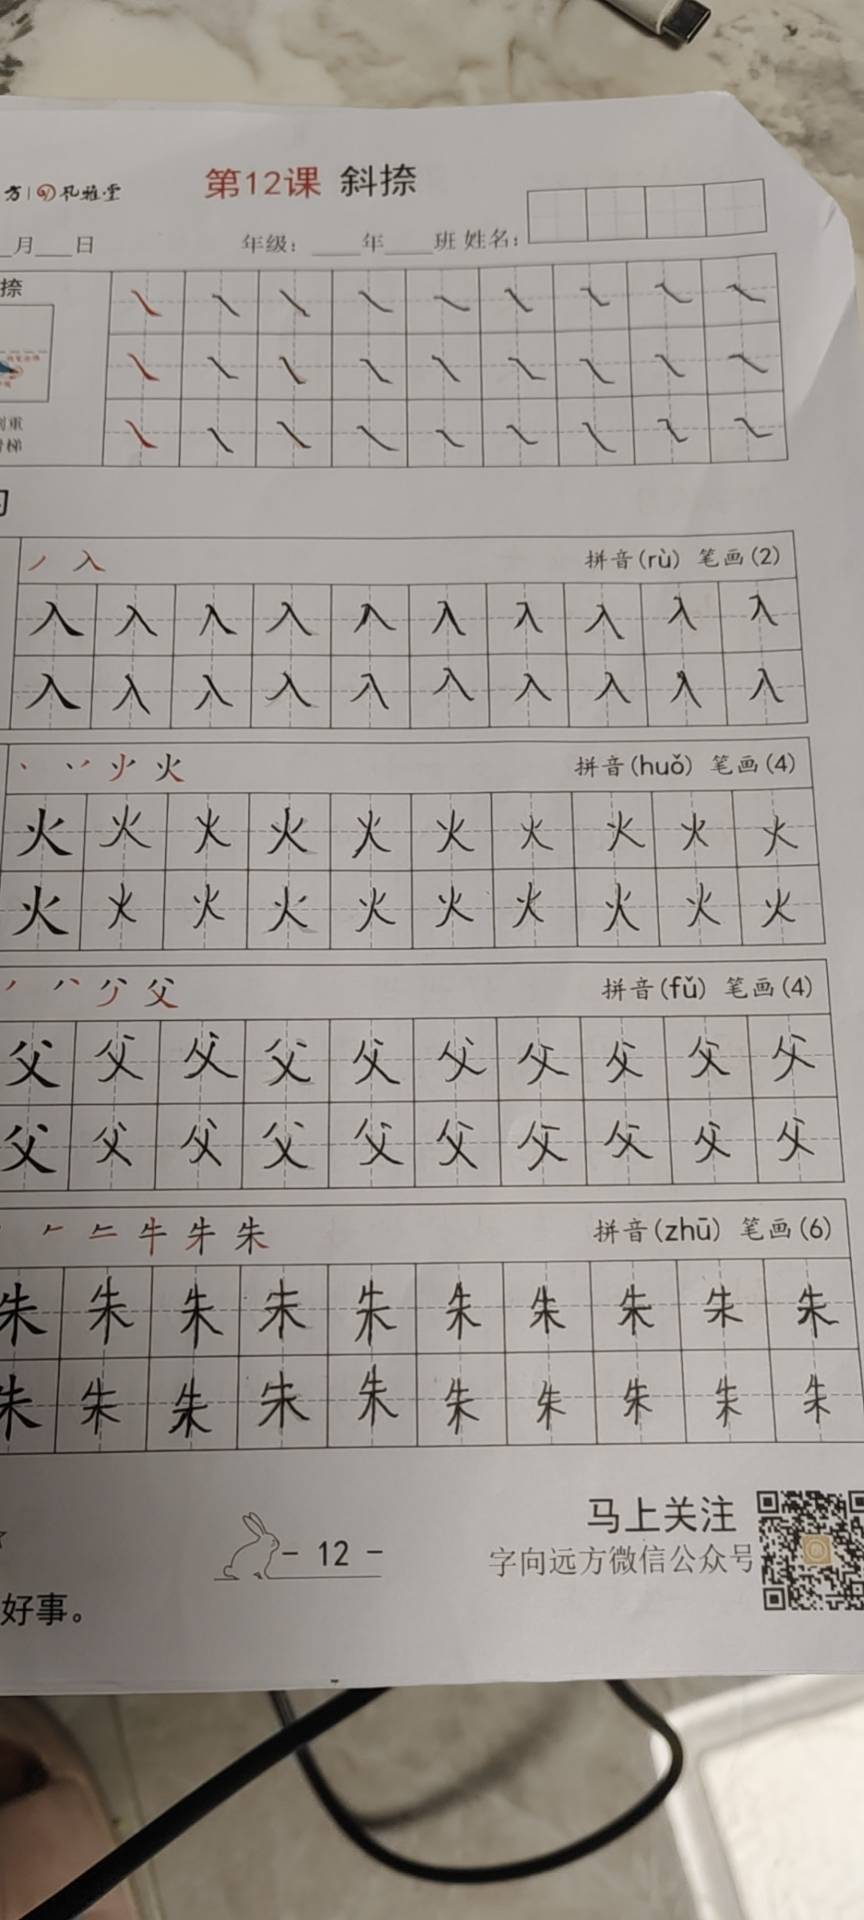 方 孔雅堂
第12课 斜捺
月 日 年级: 年 班 姓名:
捺
重
梯
习
丿 入 拼音(rù) 笔画(2)
入 入 入 入 入 入 入 入 入 入
入 入 入 入 入 入 入 入 入 入
火 拼音(huǒ) 笔画(4)
火 火 火 火 火 火 火 火 火 火
火 火 火 火 火 火 火 火 火 火
父 拼音(fǔ) 笔画(4)
父 父 父 父 父 父 父 父 父 父
父 父 父 父 父 父 父 父 父 父
牛 朱 拼音(zhū) 笔画(6)
朱 朱 朱 朱 朱 朱 朱 朱 朱 朱
朱 朱 朱 朱 朱 朱 朱 朱 朱 朱
马上关注
- 12 -
字向远方微信公众号
好事。